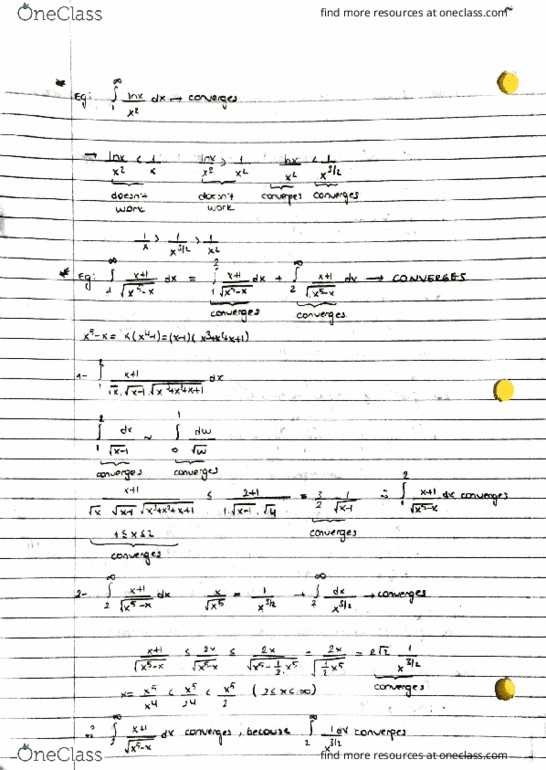 OneClass
find more resources at oneclass.com
* Eg: ∫_1^∞ lnx/x² dx → converges
→ lnx/x² < 1/x   lnx/x² > 1/x²   lnx/x² < 1/x^{3/2}
doesn't work   doesn't work   converges converges
1/x > 1/x^{3/2} > 1/x²
* Eg: ∫_1^∞ x+1/√(x⁵-x) dx = ∫_1^2 x+1/√(x⁵-x) dx + ∫_2^∞ x+1/√(x⁵-x) dx → CONVERGES
converges   converges
x⁵-x = x(x⁴-1) = (x-1)(x³+x²+x+1)
1- ∫_1^2 x+1/√x.√(x-1).√(x³+x²+x+1) dx
∫_1^2 dx/√(x-1) ~ ∫_0^1 dw/√w
converges   converges
x+1/√x √(x-1) √(x³+x²+x+1) ≤ 2+1/1.√(x-1).√4 = 3/2 1/√(x-1) ∴ ∫_1^2 x+1/√(x⁵-x) dx converges
1≤x≤2   converges
converges
2- ∫_2^∞ x+1/√(x⁵-x) dx   x/√x⁵ = 1/x^{3/2} → ∫_2^∞ dx/x^{3/2} → converges
x+1/√(x⁵-x) ≤ 2x/√(x⁵-x) ≤ 2x/√(x⁵-½.x⁵) = 2x/√(½x⁵) = 2√2 1/x^{3/2}
converges
x = x⁵/x⁴ < x⁵/24 < x⁵/2 (2≤x≤∞)
∴ ∫_2^∞ x+1/√(x⁵-x) dx converges, because ∫_2^∞ 1/x^{3/2} dx converges
OneClass
find more resources at oneclass.com